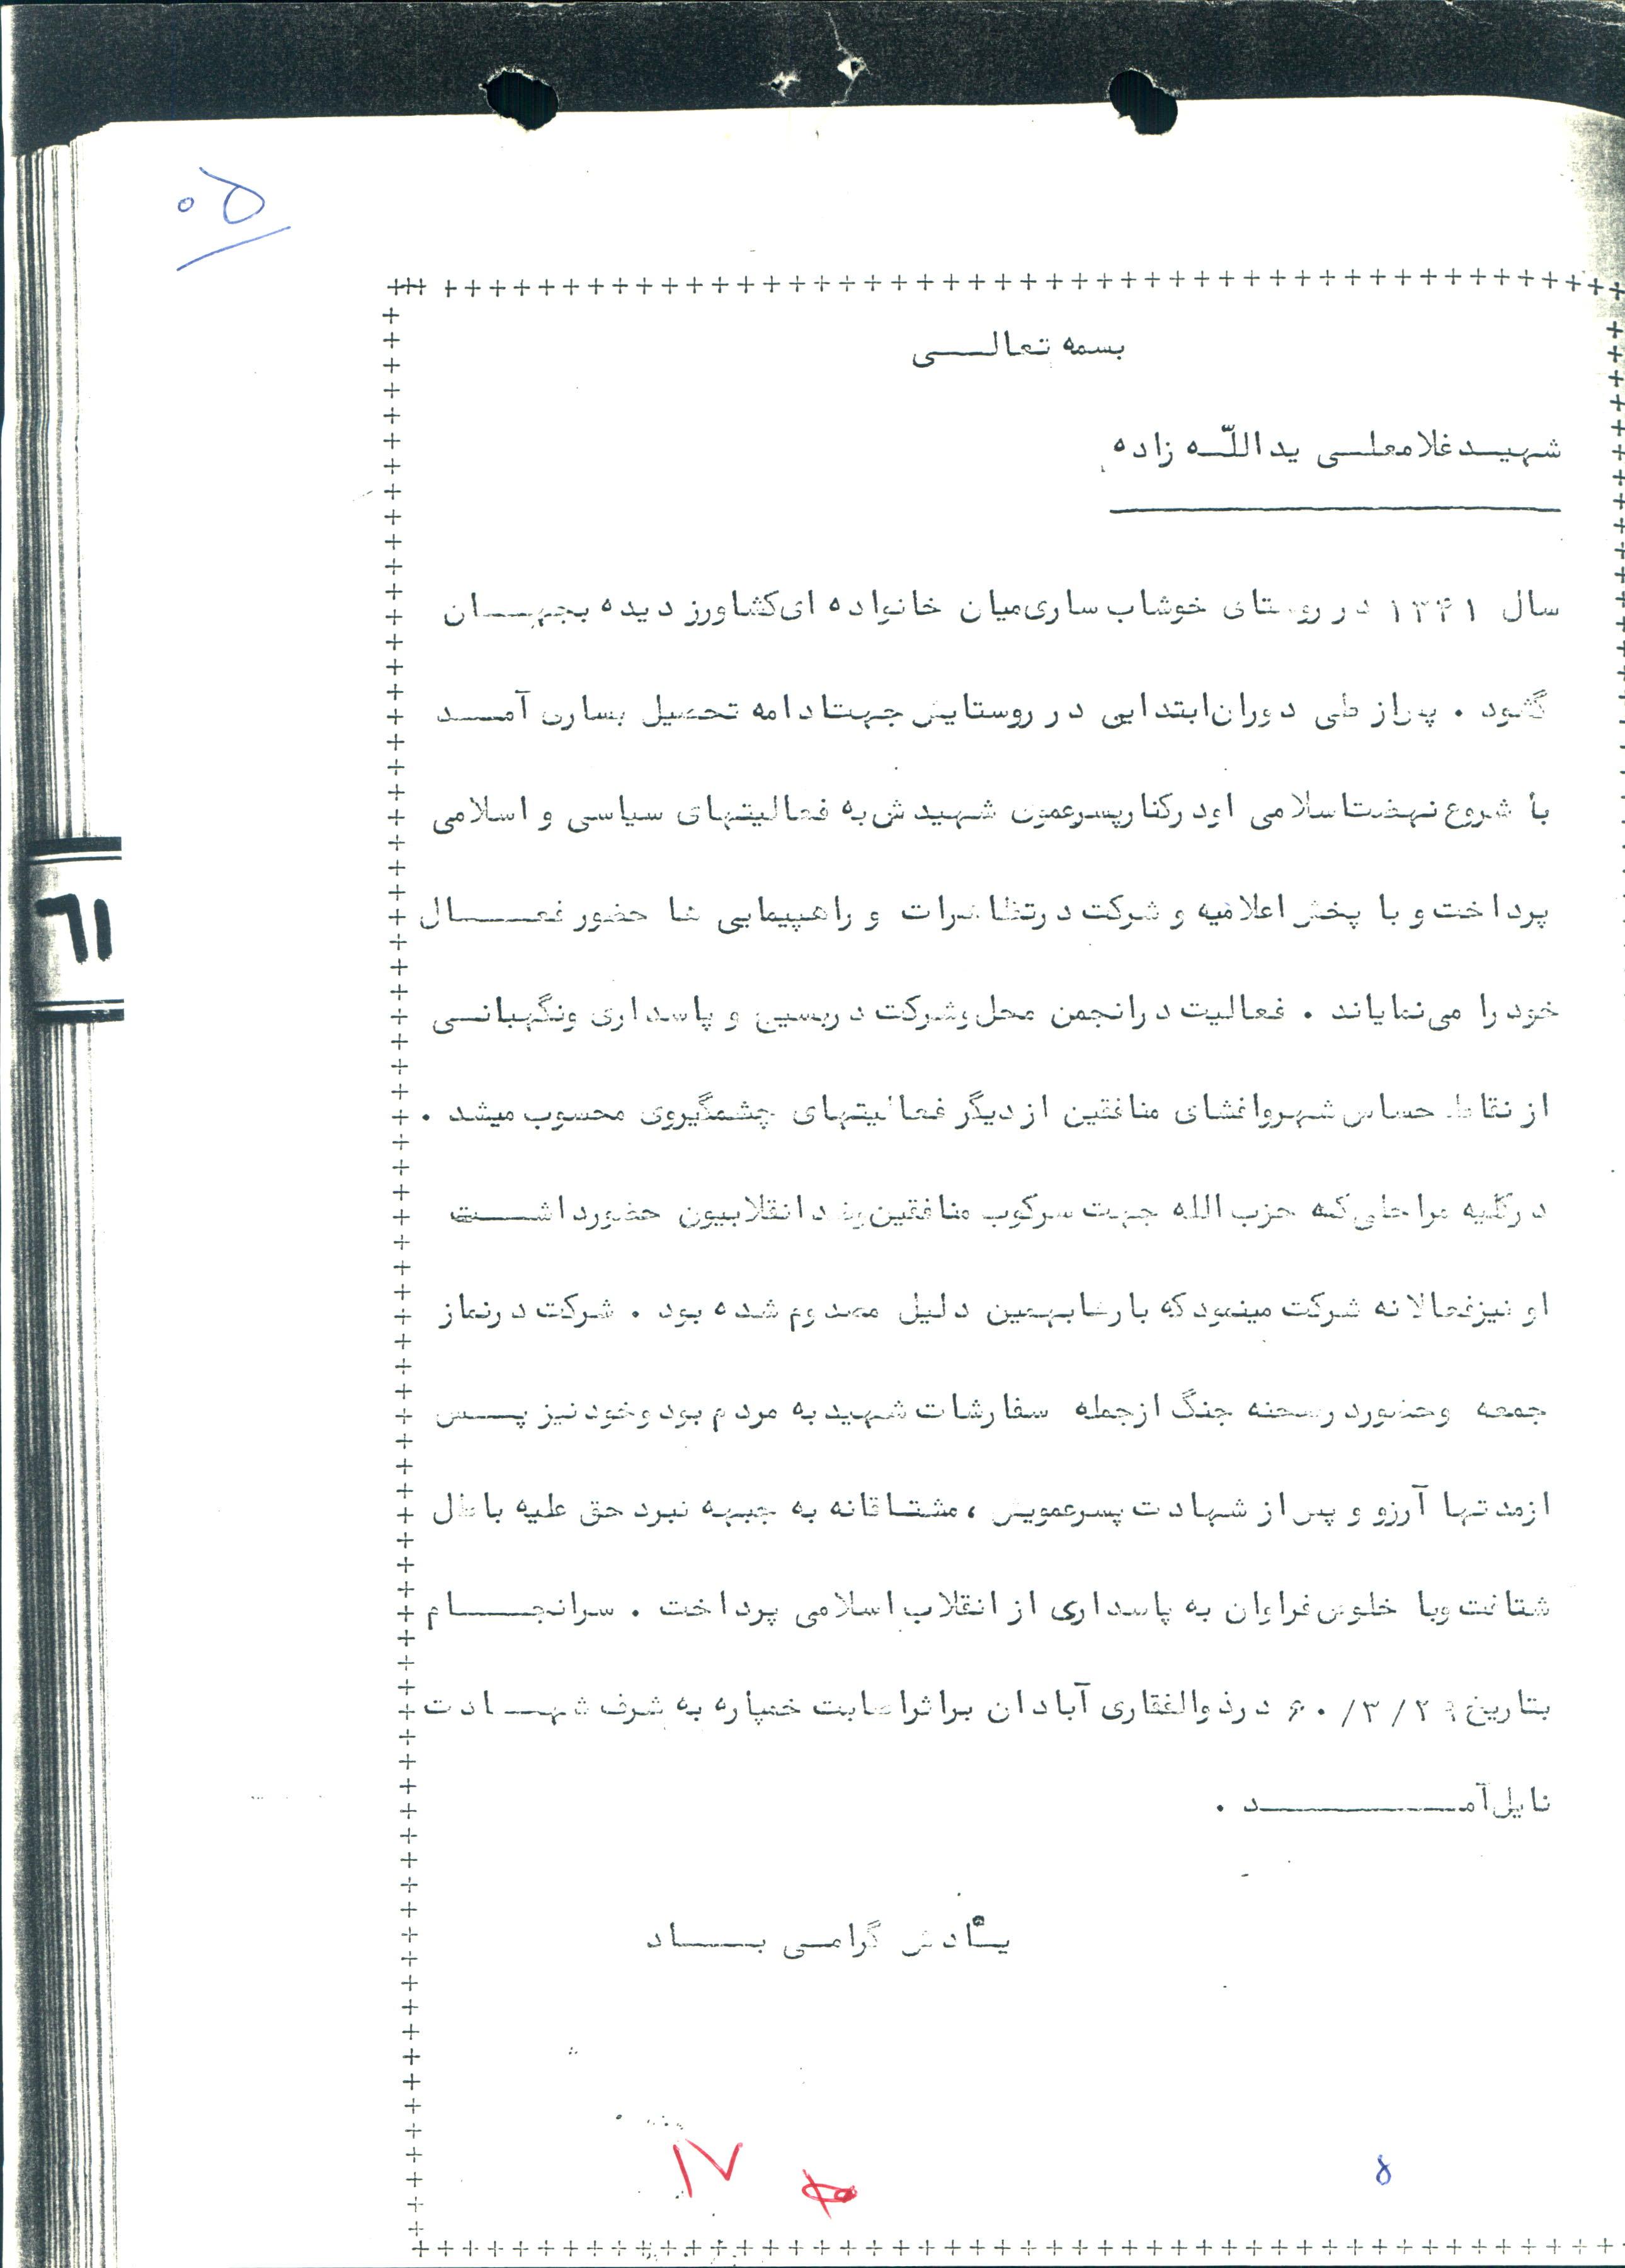 ۵۰
بسمه تعالی
شهید غلامعلی یداللّه زاده
سال ۱۳۴۱ در روستای خوشاب ساری میان خانواده ای کشاورز دیده بجهان
گشود . پس از طی دوران ابتدایی در روستایش جهت ادامه تحصیل بساری آمد
با شروع نهضت اسلامی او در کنار پسرعموی شهیدش به فعالیتهای سیاسی و اسلامی
پرداخت و با پخش اعلامیه و شرکت در تظاهرات و راهپیمایی ها حضور فعال
خود را می نمایاند . فعالیت در انجمن محل و شرکت در بسیج و پاسداری و نگهبانی
از نقاط حساس شهر و افشای منافقین از دیگر فعالیتهای چشمگیروی محسوب میشد .
در کلیه مراحلی که حزب الله جهت سرکوب منافقین و ضد انقلابیون حضور داشت
او نیز فعالانه شرکت مینمود که بارها بهمین دلیل مصدوم شده بود . شرکت در نماز
جمعه و حضور در صحنه جنگ از جمله سفارشات شهید به مردم بود و خود نیز پس
از مدتها آرزو و پس از شهادت پسرعمویش ، مشتاقانه به جبهه نبرد حق علیه باطل
شتافت و با خلوص فراوان به پاسداری از انقلاب اسلامی پرداخت . سرانجام
بتاریخ ۲۹/۳/۶۰ در ذوالفقاری آبادان بر اثر اصابت خمپاره به شرف شهادت
نایل آمد .
یادش گرامی باد
۶۱
۱۷
۵